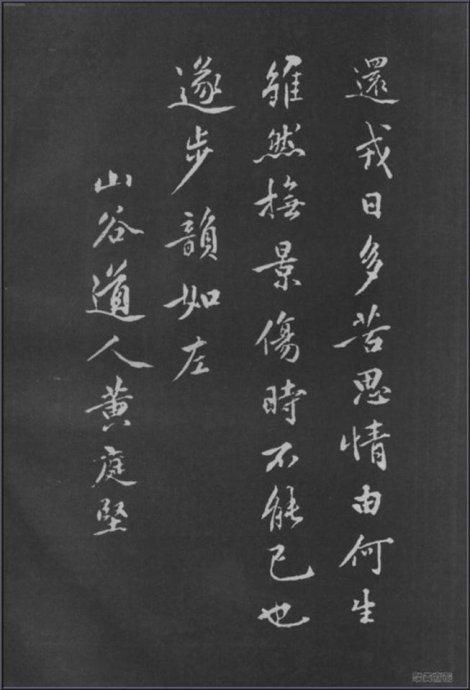 還我日多苦思情由何生
雖然撫景傷時不能已也
遂步韻如左
山谷道人黄庭堅